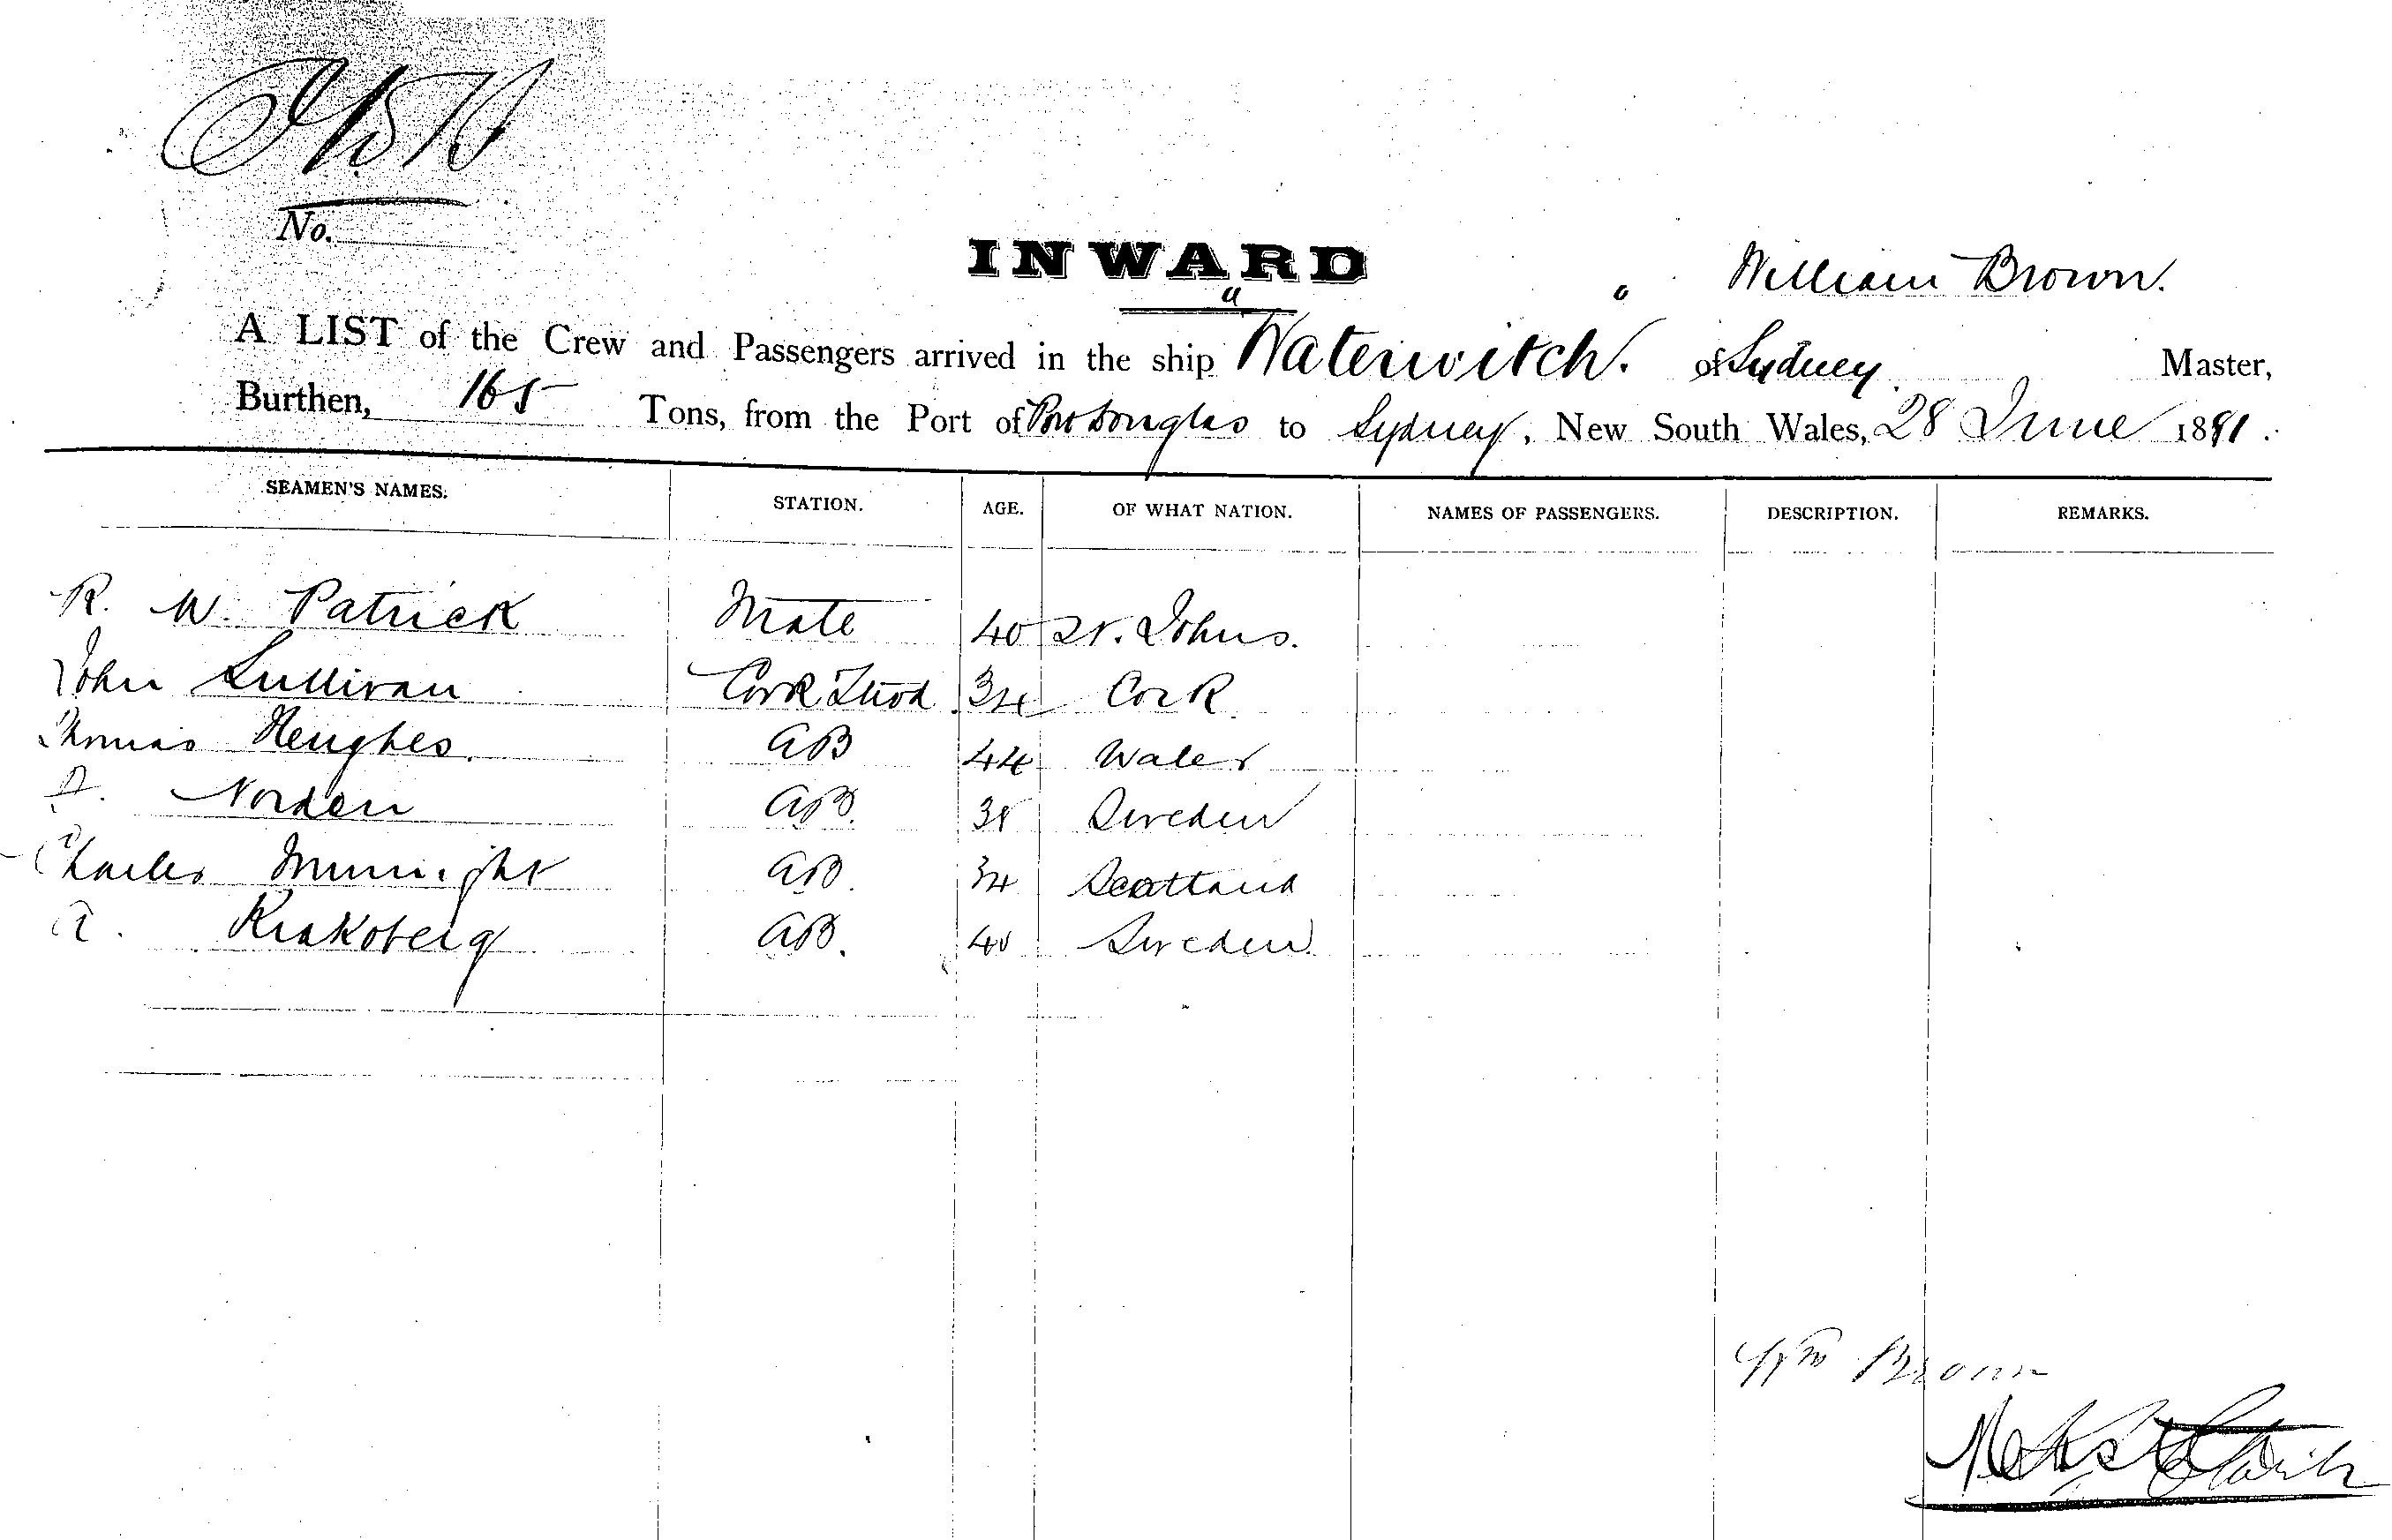 No.
INWARD
William Brown.
A LIST of the Crew and Passengers arrived in the ship "Waterwitch." of Sydney. Master,
Burthen, 165 Tons, from the Port of Port Douglas to Sydney, New South Wales, 28 June 1891.
SEAMEN'S NAMES. STATION. AGE. OF WHAT NATION. NAMES OF PASSENGERS. DESCRIPTION. REMARKS.
R. W. Patrick Mate 40 St. Johns.
John Sullivan Cook 34 Cork
Thomas Heughes. AB 44 Wales
Norden AB. 38 Sweden
Charles AB. 34 Scotland
A. AB. 40 Sweden.
Wm Brown